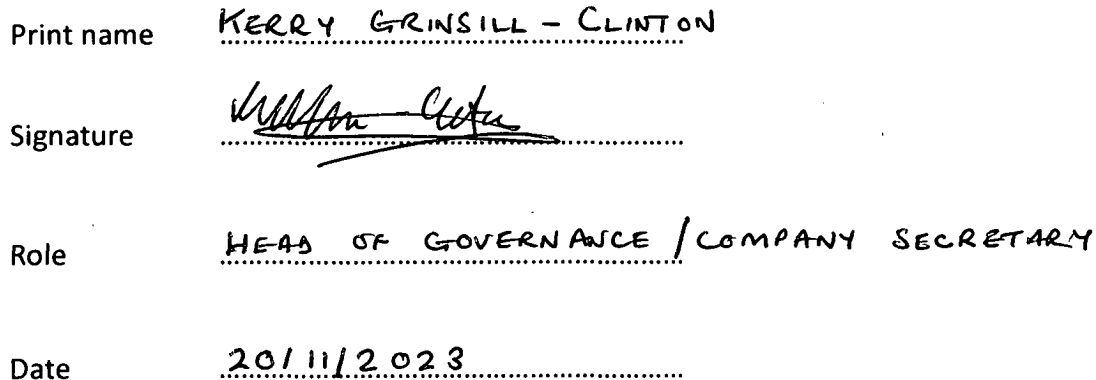 Print name KERRY GRINSILL - CLINTON
Signature
Role HEAD OF GOVERNANCE / COMPANY SECRETARY
Date 20/11/2023